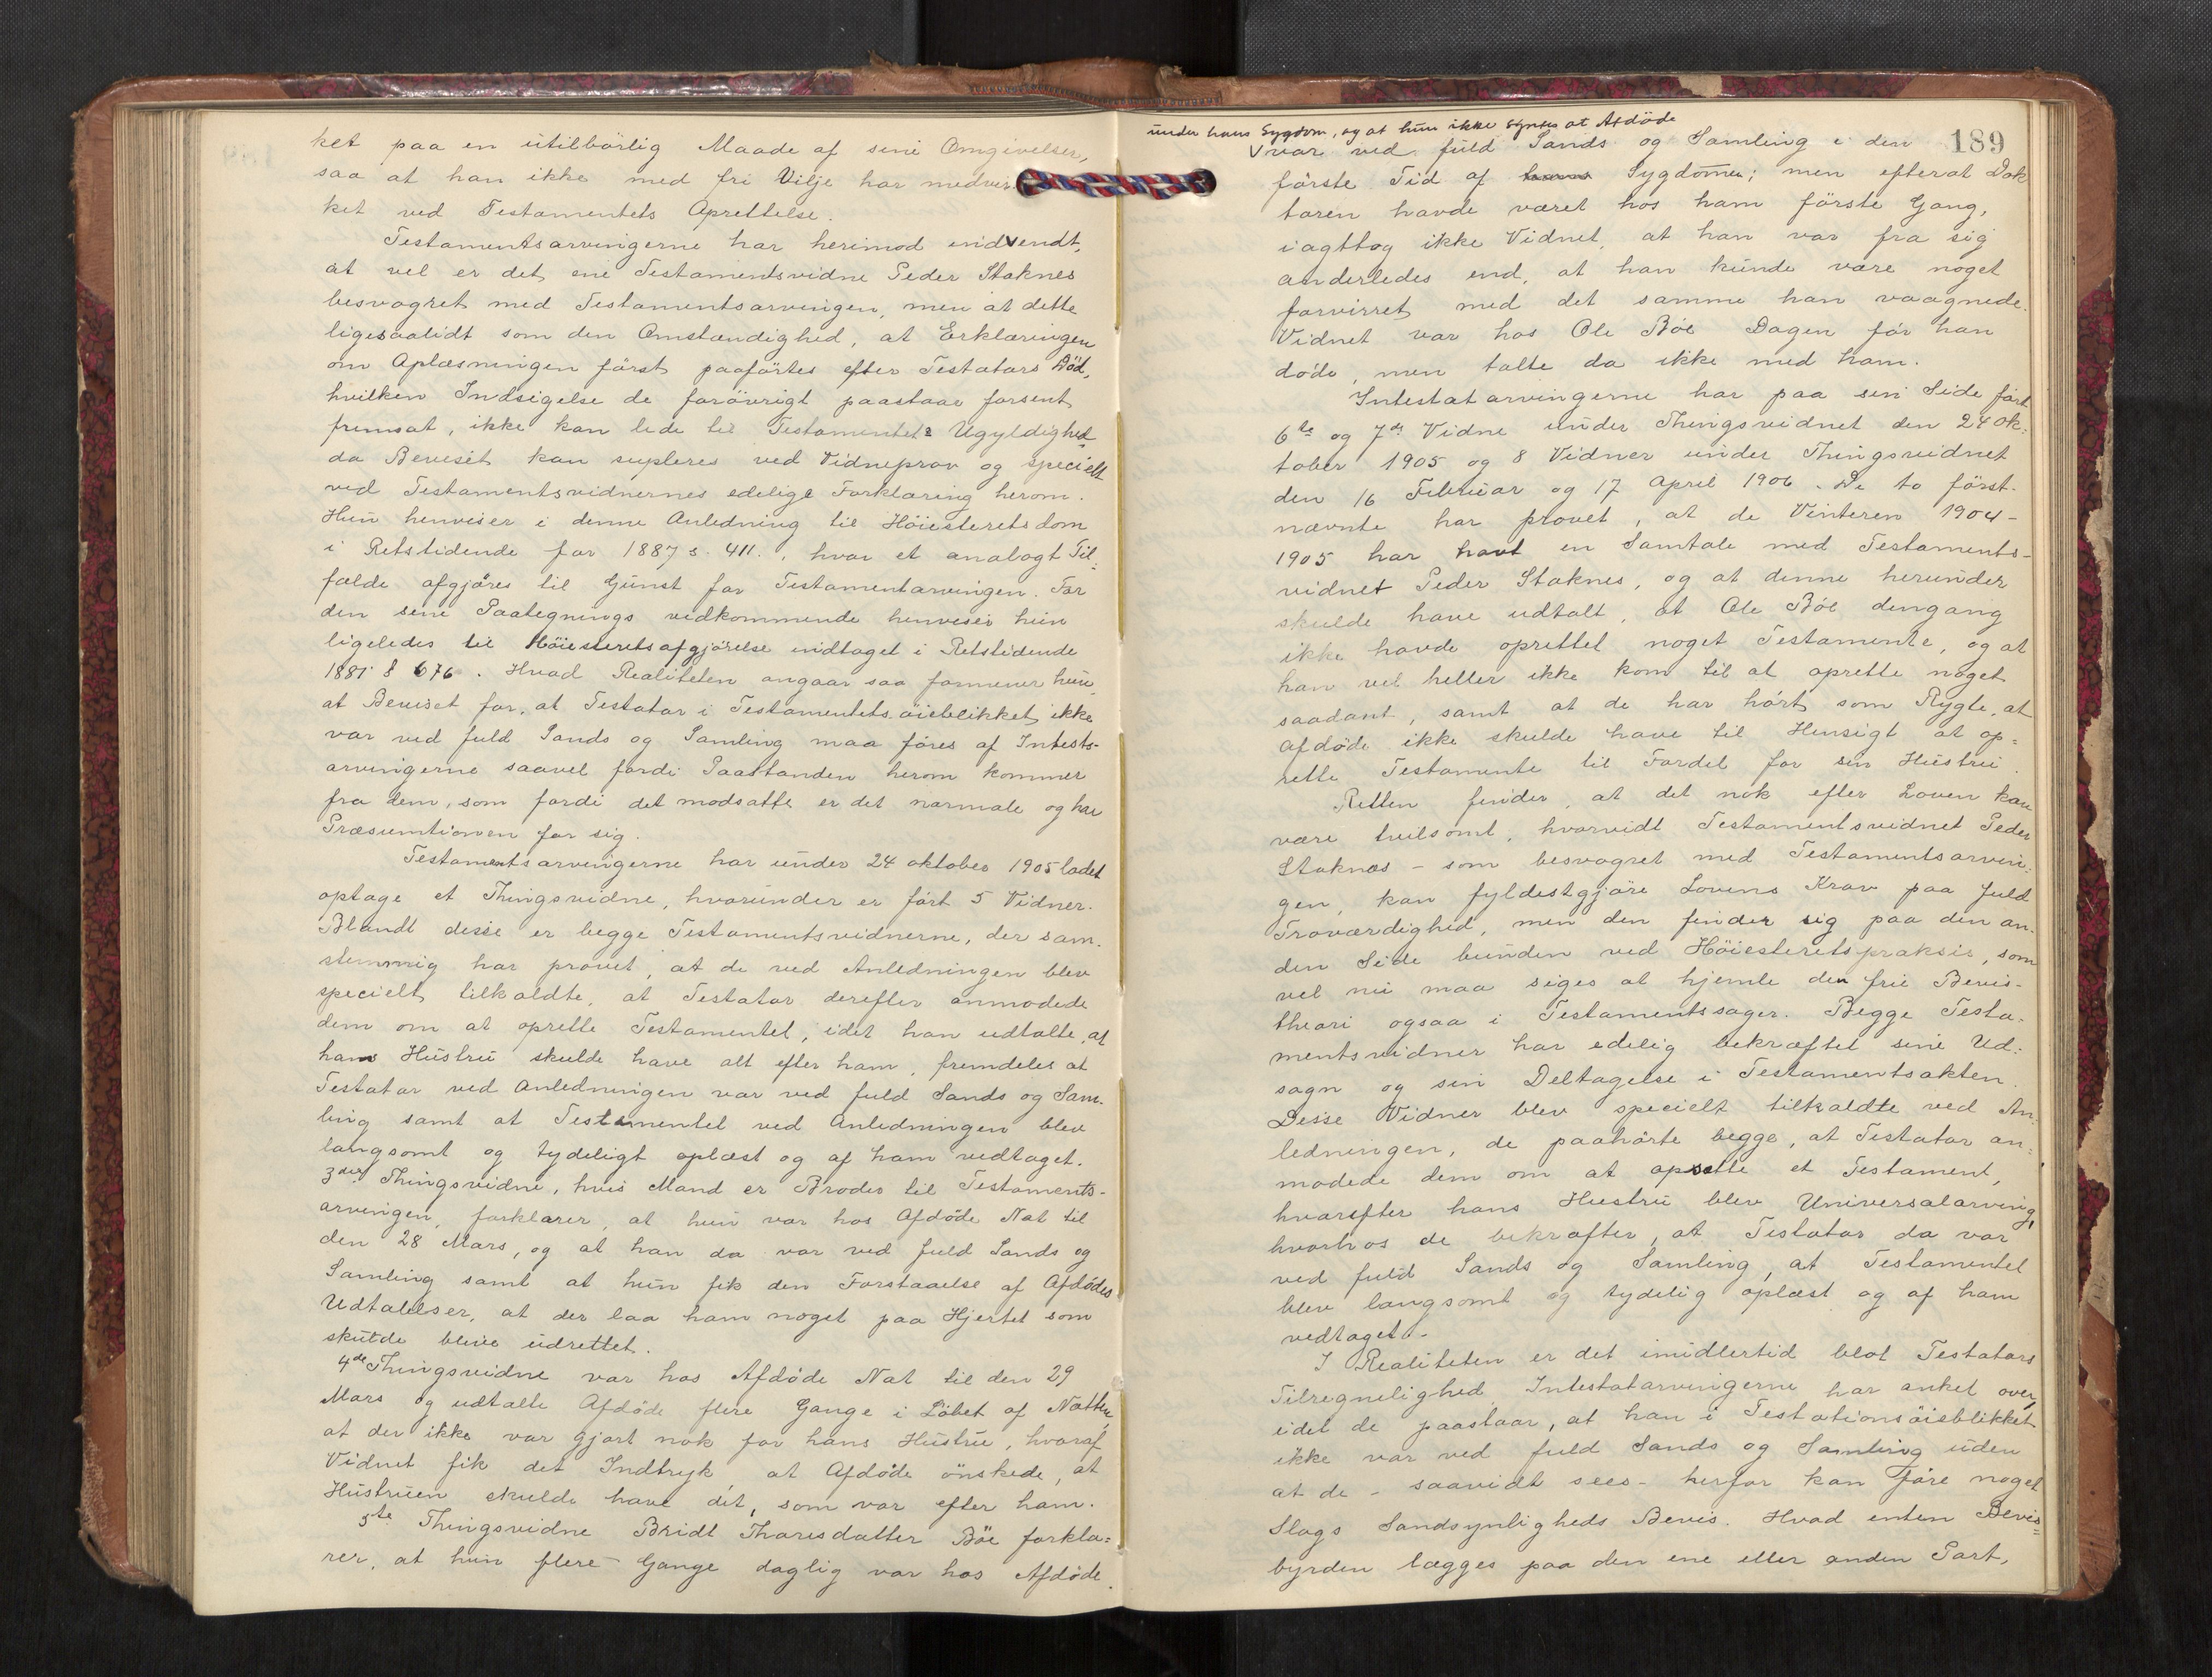 ket paa en utilbörlig Maade af sine Omgivelser,
saa at han ikke med fri Vilje har medvir
ket ved Testamentets Oprettelse.
Testamentsarvingerne har herimod indvendt,
at vel er det ene Testamentsvidne Peder Staknes
besvogret med Testamentsarvingen, men at dette
ligesaalidt som den Omstændighed, at Erklæringen
om Oplæsningen först paaførtes efter Testators Död,
hvilken Indsigelse de forövrigt paastaar forsent
fremsat, ikke kan lede til Testamentets Ugyldighed
da Beviset kan supleres ved Vidneprov og specielt
ved Testamentsvidnernes edelige Forklaring herom.
Hun henviser i denne Anledning til Höiesteretsdom
i Retstidende for 1887 s. 411., hvor et analogt Til=
fælde afgjöres til Gunst for Testamentarvingen. For
den sene Paategnings vedkommende henviser hun
ligeledes til Höiesteretsafgjörelse indtaget i Retstidende
1881 S 676. Hvad Realiteten angaar saa formener hun,
at Beviset for, at Testator i Testamentets öieblikket ikke
var ved fuld Sands og Samling maa föres af Intests-
arvingerne saavel fordi Paastanden herom kommer
fra dem, som fordi det modsatte er det normale og har
Præsumtionen for sig.
Testamentsarvingerne har under 24 oktober 1905 ladet
optage et Thingsvidne, hvorunder er fört 5 Vidner.
Blandt disse er begge Testamentsvidnerne, der sam-
stemmig har provet, at de ved Anledningen blev
specielt tilkaldte, at Testator derefter anmodede
dem om at oprette Testamentet, idet han udtalte, at
hans Hustru skulde have alt efter ham, fremdeles at
Testator ved Anledningen var ved fuld Sands og Sam-
ling samt at Testamentet ved Anledningen blev
langsomt og tydeligt oplæst og af ham vedtaget.
3die Thingsvidne, hvis Mand er Broder til Testaments-
arvingen, forklarer, at hun var hos Afdöde Nat til
den 28 Mars, og at han da var ved fuld Sands og
Samling samt at hun fik den Forstaaelse af Afdödes
Udtalelser, at der laa ham noget paa Hjertet som
skulde blive udrettet.
4de Thingsvidne var hos Afdöde Nat til den 29
Mars og udtalte Afdöde flere Gange i Löbet af Natten,
at der ikke var gjort nok for hans Hustru, hvoraf
Vidnet fik det Indtryk at Afdöde önskede, at
Hustruen skulde have dét, som var efter ham.
5te Thingsvidne Bridt Thoresdatter Böe forkla=
rer, at hun flere Gange daglig var hos Afdöde
189
under hans Sygdom, og at hun ikke syntes at Afdöde
var ved fuld Sands og Samling i den
förste Tid af Sygdomen; men efterat Dok
toren havde været hos ham förste Gang,
iagttog ikke Vidnet, at han var fra sig
anderledes end, at han kunde være noget
forvirret med det samme han vaagnede.
Vidnet var hos Ole Böe Dagen för han
döde, men talte da ikke med ham.
Intestatarvingerne har paa sin Side fört
6te og 7de Vidne under Thingsvidnet den 24 Ok=
tober 1905 og 8 Vidner under Thingsvidnet
den 16 Februar og 17 April 1906. De to först-
nævnte har provet, at de Vinteren 1904-
1905 har havt en Samtale med Testaments-
vidnet Peder Staknes, og at denne herunder
skulde have udtalt, at Ole Böe dengang
ikke havde oprettet noget Testamente, og at
han vel heller ikke kom til at oprette noget
saadant, samt at de har hört som Rygte, at
afdöde ikke skulde have til Hensigt at op=
rette Testamente til Fordel for sin Hustru.
Retten finder, at det nok efter Loven kan
være tvilsomt, hvorvidt Testamentsvidnet Peder
Staknæs - som besvogret med Testamentsarvin=
gen, kan fyldestgjöre Lovens Krav paa fuld
Troværdighed, men den finder sig paa den an-
den Side bunden ved Höiesteretspraksis, som
vel nu maa siges at hjemle den frie Bevis-
theori ogsaa i Testamentssager. Begge Testa-
mentsvidner har edelig bekræftet sine Ud=
sagn og sin Deltagelse i Testamentsakten.
Disse Vidner blev specielt tilkaldte ved An=
ledningen, de paahörte begge, at Testator an=
modede dem om at opsette et Testament,
hvorefter hans Hustru blev Universalarving,
hvorhos de bekræfter, at Testator da var
ved fuld Sands og Samling, at Testamentet
blev langsomt og tydelig oplæst og af ham
vedtaget.-
I Realiteten er det imidlertid blot Testators
Tilregnelighed, Intestatarvingerne har anket over,
idet de paastaar, at han i Testationsöieblikket
ikke var ved fuld Sands og Samling uden
at de - saavidt sees - herfor kan före noget
Slags Sandsynligheds Bevis. Hvad enten Bevis=
byrden lægges paa den ene eller anden Part,